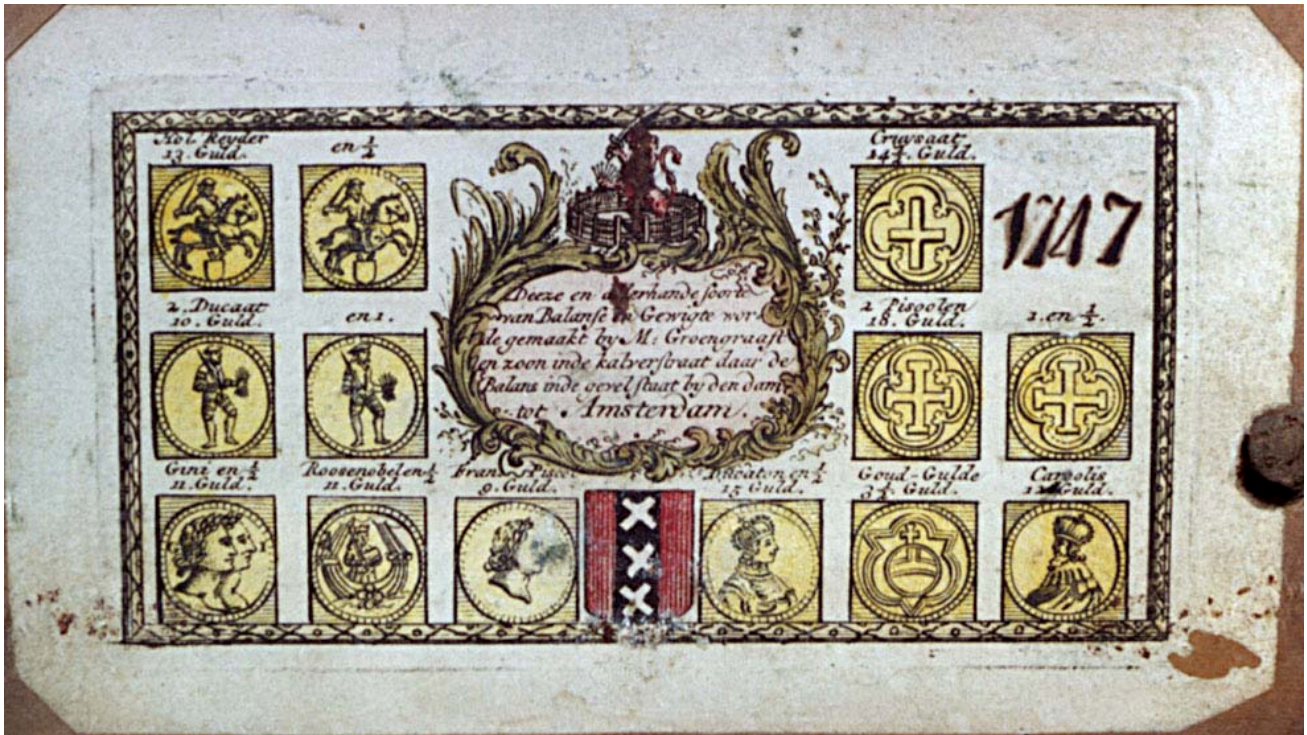 Hol. Reyder
13. Guld.
en 1/2
Cruysaat
14 1/2. Guld.
1747
2. Ducaat
10. Guld.
en 1.
Deeze en allerhande soorte
van Balanse en Gewigte wor-
de gemaakt by M: Groengraaft
en zoon inde kalverstraat daar de
Balans inde gevel staat by den dam
tot Amsterdam.
2 Pisoolen
18. Guld.
1. en 1/2.
Gini en 1/2
11. Guld.
Roosenobel en 1/2
11. Guld.
9. Guld.
Ducaton en 1/2
15 Guld.
Goud-Gulde
3 1/2 Guld.
Caroolis
Guld.